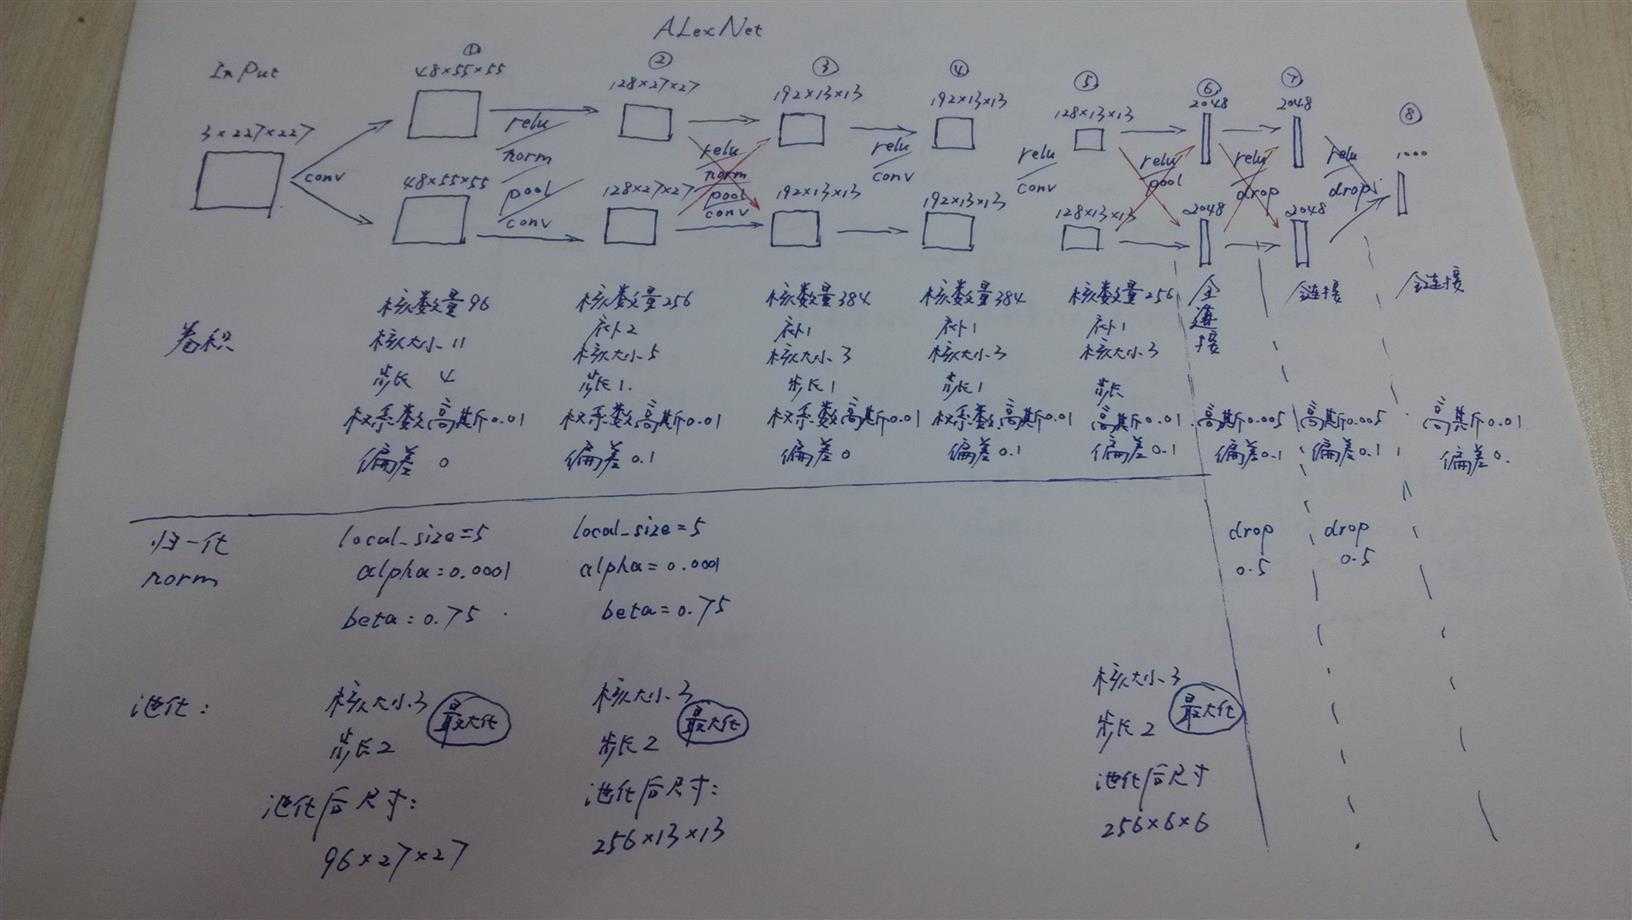 ALexNet
InPut
①
②
③
④
⑤
⑥
⑦
⑧
3×227×227
48×55×55
128×27×27
192×13×13
192×13×13
128×13×13
2048
2048
1000
conv
relu
norm
pool
conv
relu
norm
pool
conv
relu
conv
relu
conv
relu
pool
relu
drop
relu
drop
48×55×55
128×27×27
192×13×13
192×13×13
128×13×13
2048
2048
卷积
核数量96
核大小 11
步长 4
权系数高斯0.01
偏差 0
核数量256
补2
核大小5
步长1.
权系数高斯0.01
偏差0.1
核数量384
补1
核大小3
步长1
权系数高斯0.01
偏差0
核数量384
补1
核大小3
步长1
权系数高斯0.01
偏差0.1
核数量256
补1
核大小3
步长
高斯0.01
偏差0.1
全连接
高斯0.005
偏差0.1
全链接
高斯0.005
偏差0.1
全连接
高斯0.01
偏差0.
归一化
norm
local_size=5
alpha=0.0001
beta=0.75
local_size=5
alpha=0.0001
beta=0.75
drop
0.5
drop
0.5
池化:
核大小3
最大化
步长2
池化后尺寸:
96×27×27
核大小3
最大化
步长2
池化后尺寸:
256×13×13
核大小3
最大化
步长2
池化后尺寸
256×6×6